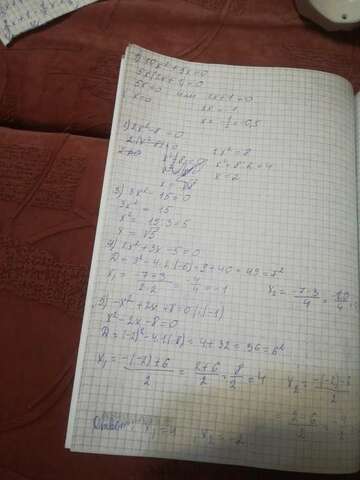 10x²+5x=0
5x(2x+1)=0
5x=0 или 2x+1=0
x=0 2x=-1
x=-1/2=-0,5
2x²-8=0
2x²=8
x²=8:2=4
x=2
3) 3x²-15=0
3x²=15
x²=15:3=5
x=√5
4) 2x²+3x-5=0
D=3²-4·2·(-5)=9+40=49=7²
x₁=(-7+3)/(2·2)=-4/4=-1 x₂=(-7-3)/4=10/4
5) -x²+2x+8=0 |:(-1)
x²-2x-8=0
D=(-2)²-4·1·(-8)=4+32=36=6²
x₁=(-(-2)+6)/2=(2+6)/2=8/2=4 x₂=(-(-2)-6)/2
(2-6)/2=
Ответ: x₁=4, x₂=-2